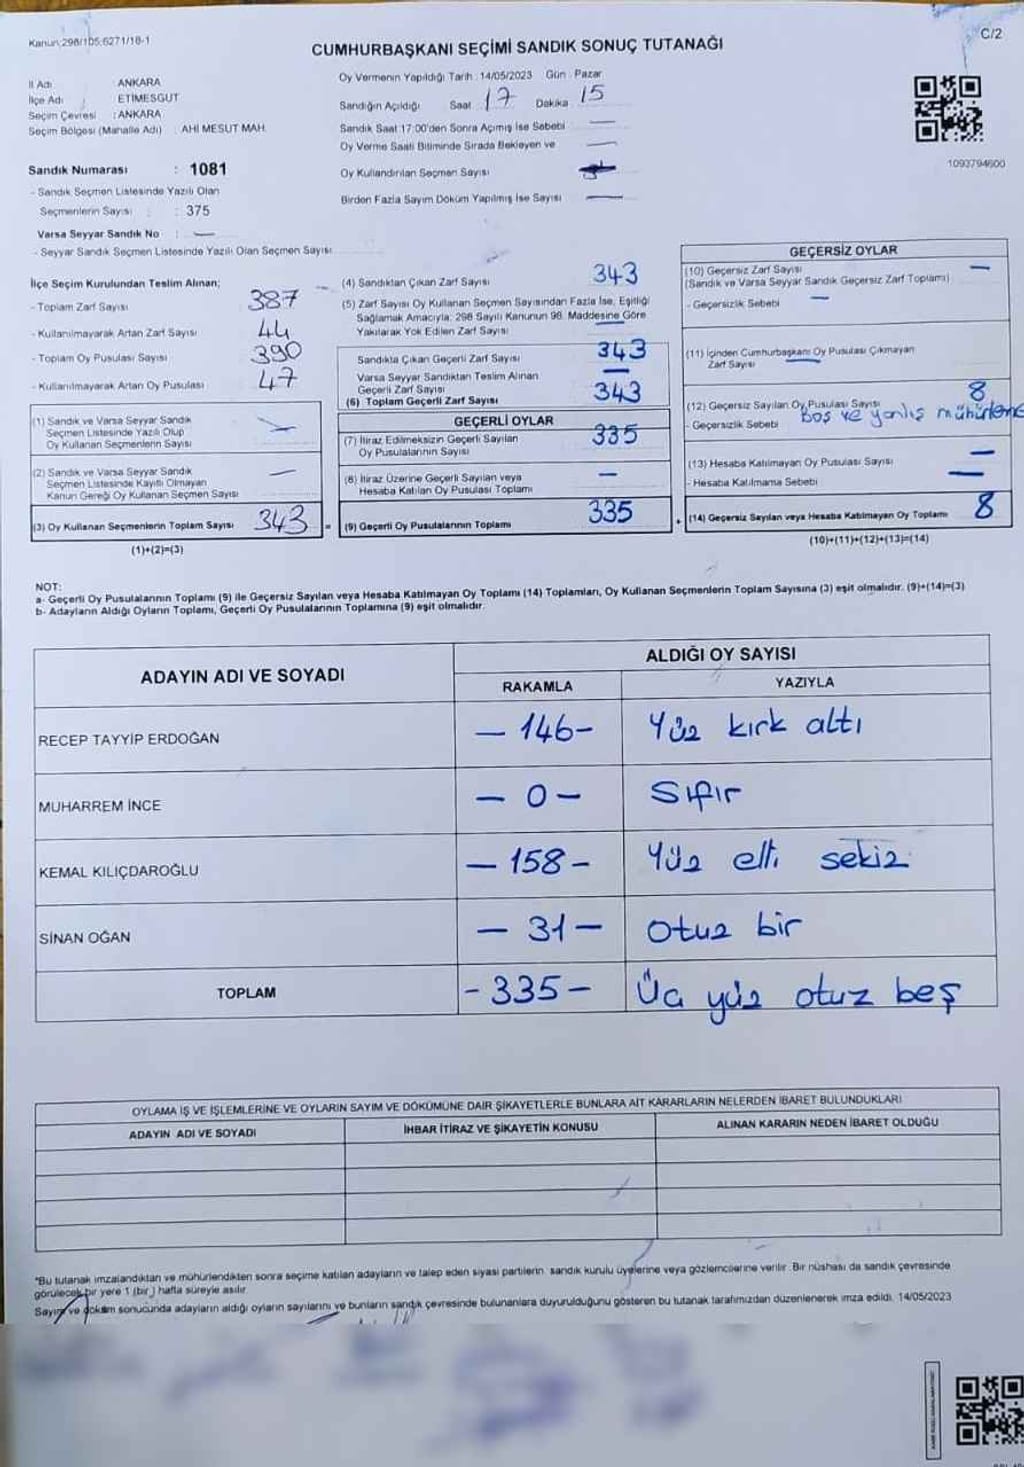 Kanun:298/105;6271/18-1
C/2
CUMHURBAŞKANI SEÇİMİ SANDIK SONUÇ TUTANAĞI
İl Adı : ANKARA
İlçe Adı : ETİMESGUT
Seçim Çevresi : ANKARA
Seçim Bölgesi (Mahalle Adı) : AHİ MESUT MAH.
Sandık Numarası : 1081
- Sandık Seçmen Listesinde Yazılı Olan
Seçmenlerin Sayısı : 375
Varsa Seyyar Sandık No : —
- Seyyar Sandık Seçmen Listesinde Yazılı Olan Seçmen Sayısı
Oy Vermenin Yapıldığı Tarih : 14/05/2023 Gün : Pazar
Sandığın Açıldığı Saat 17 Dakika 15
Sandık Saat 17:00'den Sonra Açımış İse Sebebi —
Oy Verme Saati Bitiminde Sırada Bekleyen ve —
Oy Kullandırılan Seçmen Sayısı
Birden Fazla Sayım Döküm Yapılmış İse Sayısı —
1093794600
İlçe Seçim Kurulundan Teslim Alınan;
- Toplam Zarf Sayısı 387
- Kullanılmayarak Artan Zarf Sayısı 44
- Toplam Oy Pusulası Sayısı 390
- Kullanılmayarak Artan Oy Pusulası 47
(1) Sandık ve Varsa Seyyar Sandık
Seçmen Listesinde Yazılı Olup
Oy Kullanan Seçmenlerin Sayısı
(2) Sandık ve Varsa Seyyar Sandık
Seçmen Listesinde Kayıtlı Olmayan
Kanun Gereği Oy Kullanan Seçmen Sayısı —
(3) Oy Kullanan Seçmenlerin Toplam Sayısı 343
(1)+(2)=(3)
(4) Sandıktan Çıkan Zarf Sayısı 343
(5) Zarf Sayısı Oy Kullanan Seçmen Sayısından Fazla İse, Eşitliği
Sağlamak Amacıyla; 298 Sayılı Kanunun 98. Maddesine Göre
Yakılarak Yok Edilen Zarf Sayısı —
Sandıkta Çıkan Geçerli Zarf Sayısı 343
Varsa Seyyar Sandıktan Teslim Alınan
Geçerli Zarf Sayısı —
(6) Toplam Geçerli Zarf Sayısı 343
GEÇERLİ OYLAR
(7) İtiraz Edilmeksizin Geçerli Sayılan
Oy Pusulalarının Sayısı 335
(8) İtiraz Üzerine Geçerli Sayılan veya
Hesaba Katılan Oy Pusulası Toplamı —
= (9) Geçerli Oy Pusulalarının Toplamı 335
GEÇERSİZ OYLAR
(10) Geçersiz Zarf Sayısı —
(Sandık ve Varsa Seyyar Sandık Geçersiz Zarf Toplamı)
- Geçersizlik Sebebi —
(11) İçinden Cumhurbaşkanı Oy Pusulası Çıkmayan
Zarf Sayısı —
(12) Geçersiz Sayılan Oy Pusulası Sayısı 8
- Geçersizlik Sebebi Boş ve yanlış mühürleme
(13) Hesaba Katılmayan Oy Pusulası Sayısı —
- Hesaba Katılmama Sebebi —
+ (14) Geçersiz Sayılan veya Hesaba Katılmayan Oy Toplamı 8
(10)+(11)+(12)+(13)=(14)
NOT:
a- Geçerli Oy Pusulalarının Toplamı (9) ile Geçersiz Sayılan veya Hesaba Katılmayan Oy Toplamı (14) Toplamları, Oy Kullanan Seçmenlerin Toplam Sayısına (3) eşit olmalıdır. (9)+(14)=(3)
b- Adayların Aldığı Oyların Toplamı, Geçerli Oy Pusulalarının Toplamına (9) eşit olmalıdır.
ADAYIN ADI VE SOYADI
ALDIĞI OY SAYISI
RAKAMLA YAZIYLA
RECEP TAYYİP ERDOĞAN — 146 - Yüz kırk altı
MUHARREM İNCE — 0 — Sıfır
KEMAL KILIÇDAROĞLU — 158 - Yüz elli sekiz
SİNAN OĞAN — 31 — Otuz bir
TOPLAM - 335 - Üç yüz otuz beş
OYLAMA İŞ VE İŞLEMLERİNE VE OYLARIN SAYIM VE DÖKÜMÜNE DAİR ŞİKAYETLERLE BUNLARA AİT KARARLARIN NELERDEN İBARET BULUNDUKLARI
ADAYIN ADI VE SOYADI İHBAR İTİRAZ VE ŞİKAYETİN KONUSU ALINAN KARARIN NEDEN İBARET OLDUĞU
*Bu tutanak imzalandıktan ve mühürlendikten sonra seçime katılan adayların ve talep eden siyasi partilerin sandık kurulu üyelerine veya gözlemcilerine verilir. Bir nüshası da sandık çevresinde
görülecek bir yere 1 (bir) hafta süreyle asılır.
Sayım ve döküm sonucunda adayların aldığı oyların sayılarını ve bunların sandık çevresinde bulunanlara duyurulduğunu gösteren bu tutanak tarafımızdan düzenlenerek imza edildi. 14/05/2023